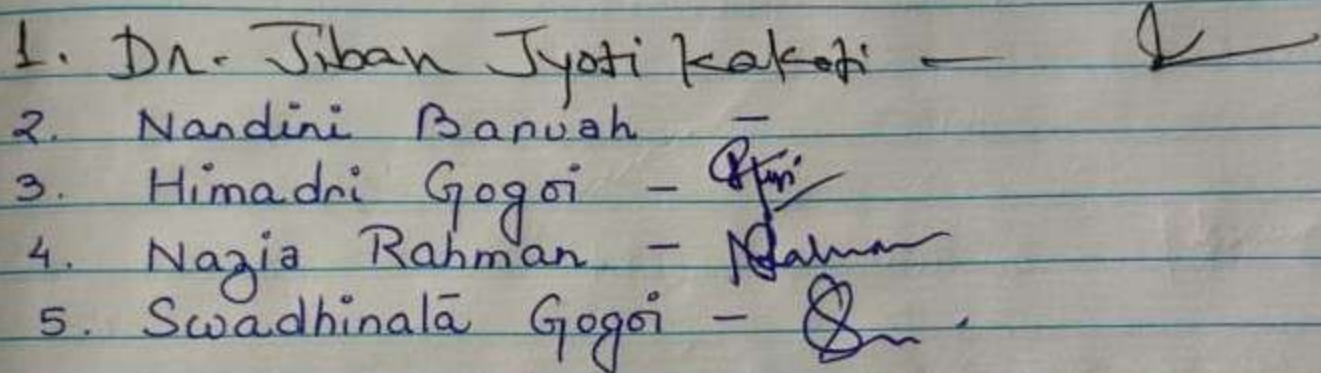 1. Dr. Jiban Jyoti Kakoti —
2. Nandini Baruah —
3. Himadri Gogoi —
4. Nazia Rahman — Rahman
5. Swadhinalā Gogoi —